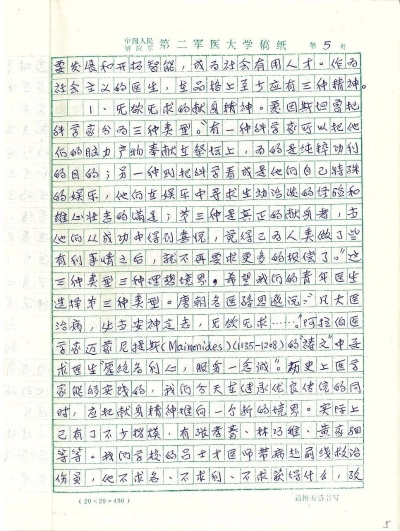 中国人民
解放军 第二军医大学稿纸 第 5 页
要发展和开拓智能，成为社会有用人才。作为
社会主义的医生，在品格上至少应有三种精神。
1、无欲无求的献身精神。爱因斯坦曾把
科学家分为三种类型。“有一种科学家可以把他
们的脑力产物奉献在祭坛上，为的是纯粹功利
的目的；另一种则把科学看成是他们自己特殊
的娱乐，他们在娱乐中寻求生动活泼的经验和
雄心壮志的满足；第三种是真正的献身者，当
他们从成功中得到喜悦，觉得已为人类做了些
有利事情之后，就不再要求更多的报偿了。”这
三种类型三种理想境界。希望我们的青年医生
选择第三种类型。唐朝名医孙思邈说：“凡大医
治病，必当安神定志，无欲无求……”阿拉伯医
学家迈蒙尼提斯(Maimonides)(1135-1208)的祷文中要
求医生“屏绝名利心，服务一念诚”。历史上医学
家能够实践的，我们今天在继承优良传统的同
时，应把献身精神推向一个新的境界。实际上
已有了不少楷模，有张孝骞、林巧稚、黄家驷
等等。我们学校的吕士才医师带病赴前线救治
伤员，他不求名、不求利、不求获得什么，致
(20×20=400)
请沿方格书写
5